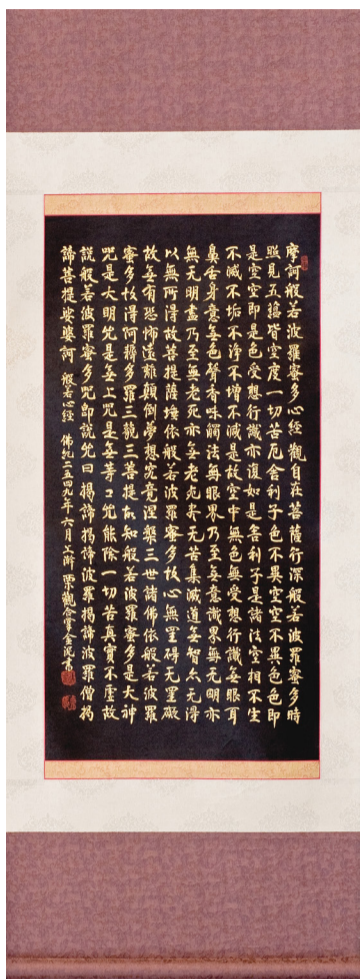 摩訶般若波羅蜜多心經 觀自在菩薩行深般若波羅蜜多時
照見五蘊皆空度一切苦厄舍利子色不異空空不異色色即
是空空即是色受想行識亦復如是舍利子是諸法空相不生
不滅不垢不淨不增不減是故空中無色無受想行識無眼耳
鼻舌身意無色聲香味觸法無眼界乃至無意識界無无明亦
無无明盡乃至無老死亦無老死盡无苦集滅道無智亦无得
以無所得故菩提薩埵依般若波羅蜜多故心無罣碍无罣礙
故無有恐怖遠離顛倒夢想究竟涅槃三世諸佛依般若波羅
蜜多故得阿耨多羅三藐三菩提故知般若波羅蜜多是大神
咒是大明咒是無上咒是無等々咒能除一切苦真實不虛故
說般若波羅蜜多咒即說咒曰揭諦揭諦波羅揭諦波羅僧揭
諦菩提娑婆訶 般若心經 佛紀二五四九年六月上澣 觀念堂金泥書